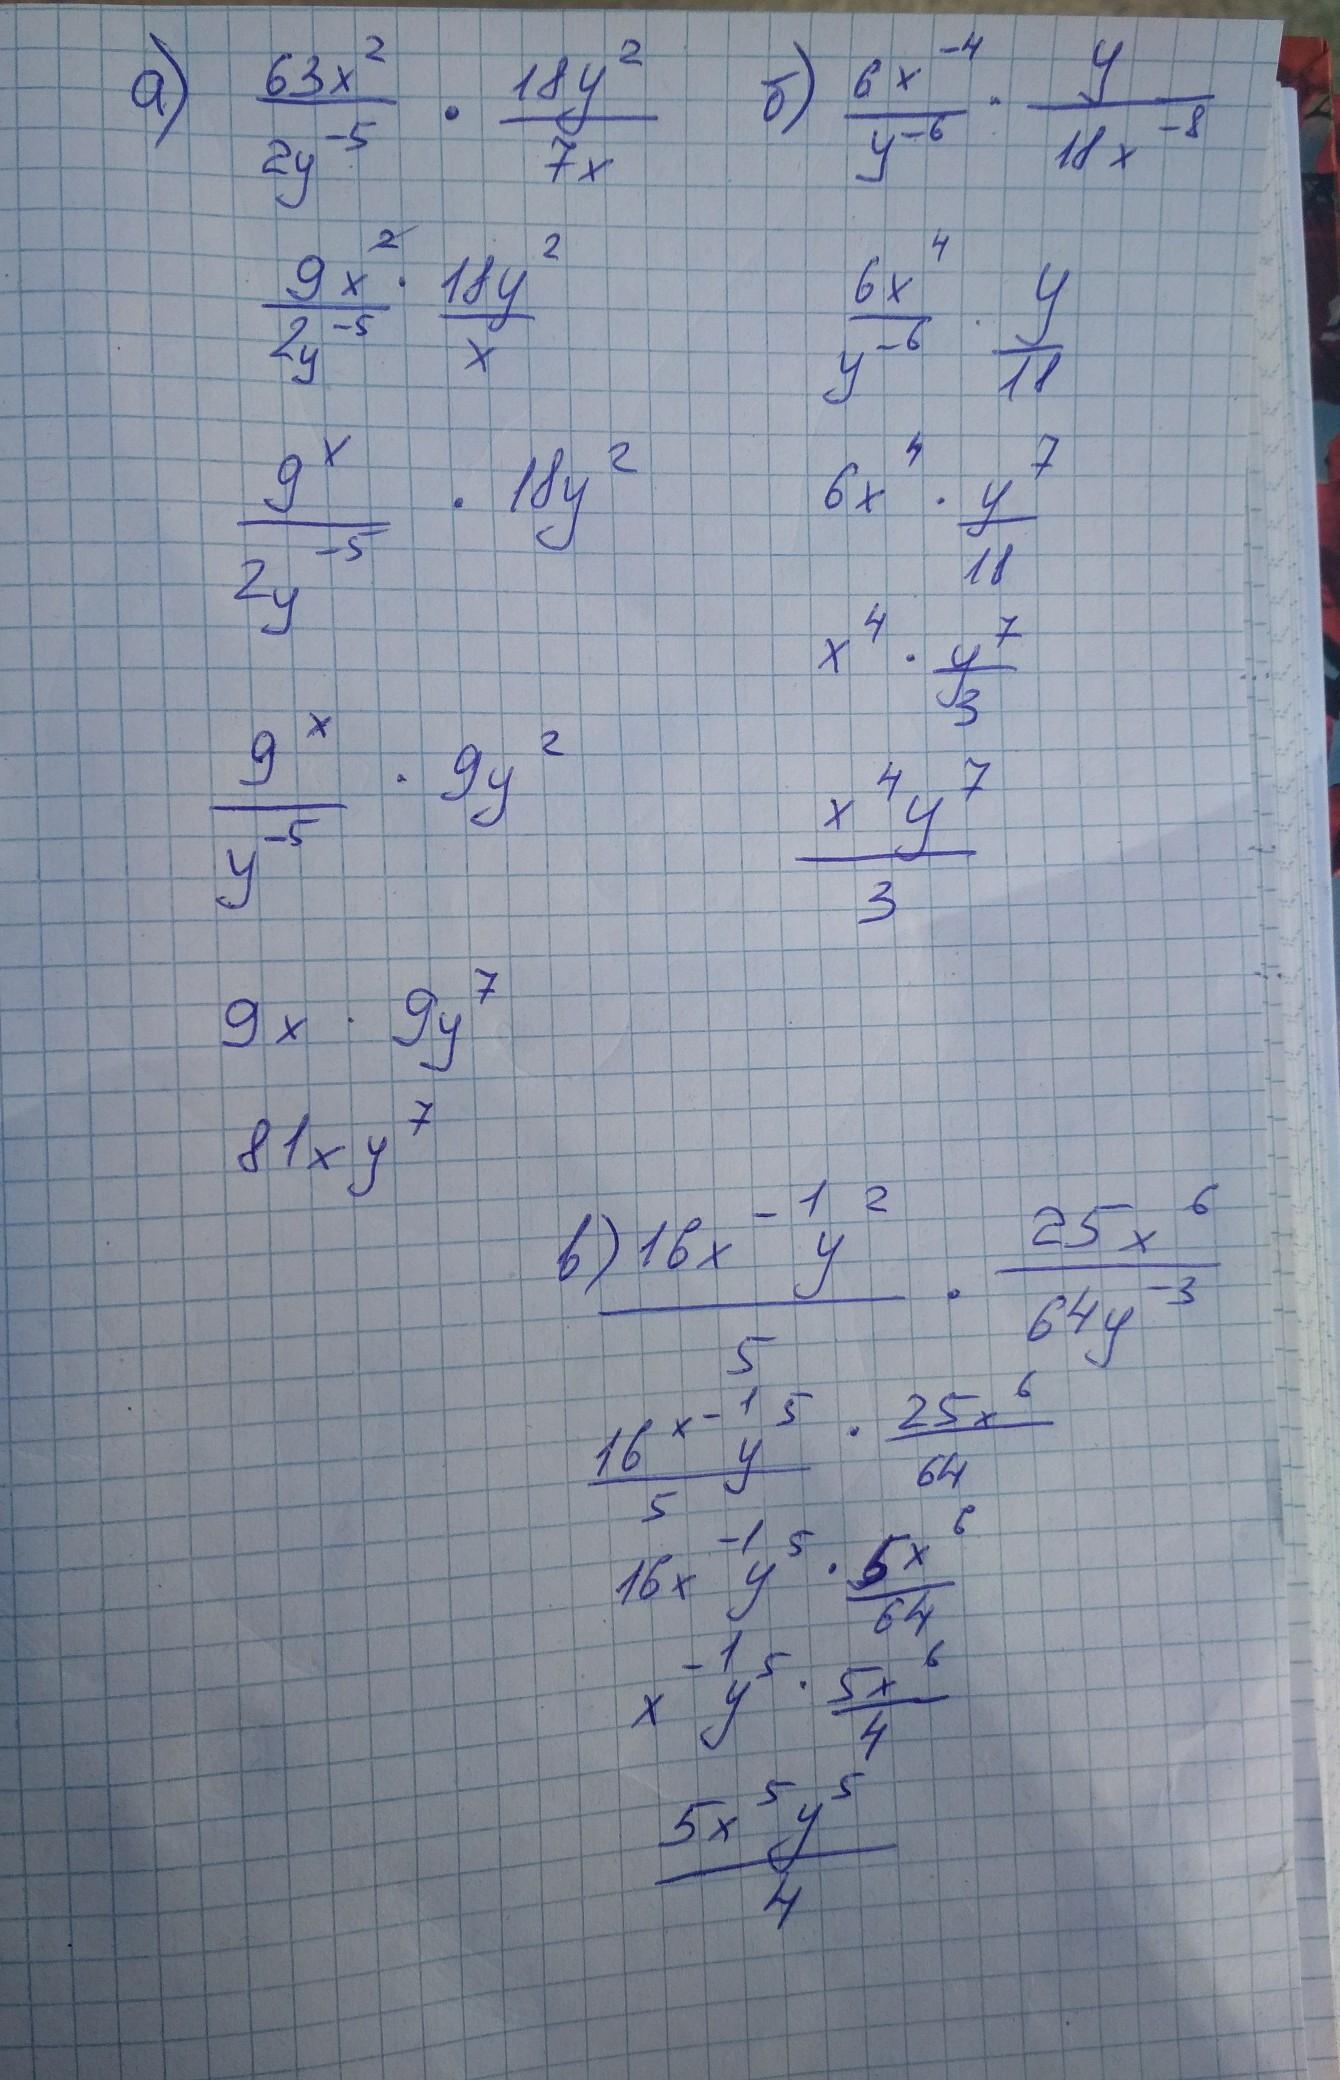 а) 63x²/2y⁻⁵ · 18y²/7x
9x²/2y⁻⁵ · 18y²/x
9ˣ/2y⁻⁵ · 18y²
9ˣ/y⁻⁵ · 9y²
9x · 9y⁷
81xy⁷
б) 6x⁻⁴/y⁻⁶ · y/18x⁻⁸
6x⁴/y⁻⁶ · y/18
6x⁴ · y⁷/18
x⁴ · y⁷/3
x⁴y⁷/3
в) 16x⁻¹y²/5 · 25x⁶/64y⁻³
16ˣ⁻¹y⁵/5 · 25x⁶/64
16x⁻¹y⁵ · 5x⁶/64
x⁻¹y⁵ · 5x⁶/4
5x⁵y⁵/4